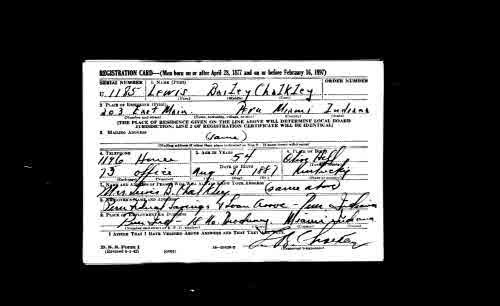 REGISTRATION CARD—(Men born on or after April 28, 1877 and on or before February 16, 1897)
SERIAL NUMBER 1. NAME (Print) ORDER NUMBER
U 1185 Lewis Bailey Chalkley
(First) (Middle) (Last)
2. PLACE OF RESIDENCE (Print)
203 East Main Peru Miami Indiana
(Number and street) (Town, township, village, or city) (County) (State)
[THE PLACE OF RESIDENCE GIVEN ON THE LINE ABOVE WILL DETERMINE LOCAL BOARD
JURISDICTION; LINE 2 OF REGISTRATION CERTIFICATE WILL BE IDENTICAL]
3. MAILING ADDRESS
(same)
[Mailing address if other than place indicated on line 2. If same insert word same]
4. TELEPHONE 5. AGE IN YEARS 6. PLACE OF BIRTH
1196 House 54
DATE OF BIRTH
73 office Aug 31 1887 Kentucky
7. NAME AND ADDRESS OF PERSON WHO WILL ALWAYS KNOW YOUR ADDRESS
Mrs Lewis B. Chalkley (same above)
8. EMPLOYER'S NAME AND ADDRESS
Savings & Loan Assoc Indiana
9. PLACE OF EMPLOYMENT OR BUSINESS
18 No. Broadway Miami Indiana
I AFFIRM THAT I HAVE VERIFIED ABOVE ANSWERS AND THAT THEY ARE TRUE.
D. S. S. Form 1
L B Chalkley